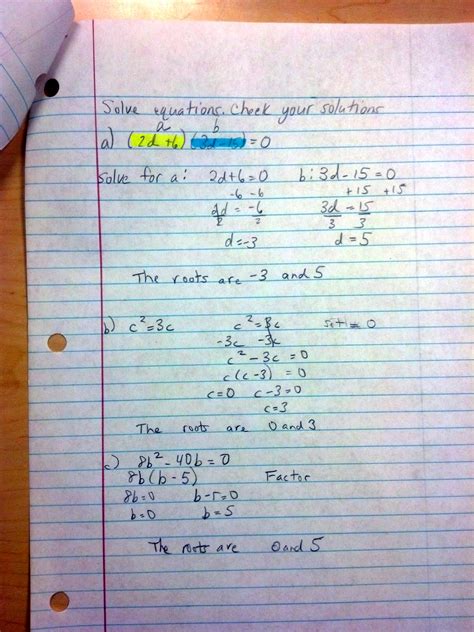 Solve equations. Check your solutions
a b
a) (2d+6)(3d-15)=0
Solve for a: 2d+6=0 b: 3d-15=0
-6 -6 +15 +15
2d = -6 3d = 15
2 2 3 3
d=-3 d=5
The roots are -3 and 5
b) c²=3c c²=3c set = 0
-3c -3c
c²-3c = 0
c(c-3) = 0
c=0 c-3=0
c=3
The roots are 0 and 3
c) 8b²-40b=0
8b(b-5) Factor
8b=0 b-5=0
b=0 b=5
The roots are 0 and 5